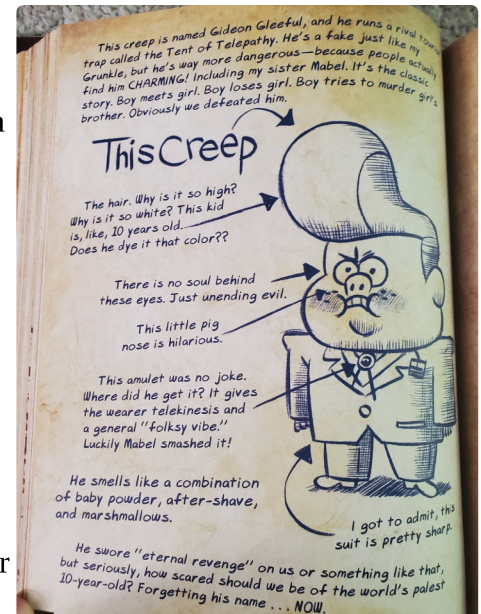 This creep is named Gideon Gleeful, and he runs a rival tourist
trap called the Tent of Telepathy. He's a fake just like my
Grunkle, but he's way more dangerous—because people actually
find him CHARMING! Including my sister Mabel. It's the classic
story. Boy meets girl. Boy loses girl. Boy tries to murder girl's
brother. Obviously we defeated him.
This Creep
The hair. Why is it so high?
Why is it so white? This kid
is, like, 10 years old.
Does he dye it that color??
There is no soul behind
these eyes. Just unending evil.
This little pig
nose is hilarious.
This amulet was no joke.
Where did he get it? It gives
the wearer telekinesis and
a general "folksy vibe."
Luckily Mabel smashed it!
He smells like a combination
of baby powder, after-shave,
and marshmallows.
I got to admit, this
suit is pretty sharp.
He swore "eternal revenge" on us or something like that,
but seriously, how scared should we be of the world's palest
10-year-old? Forgetting his name . . . NOW.